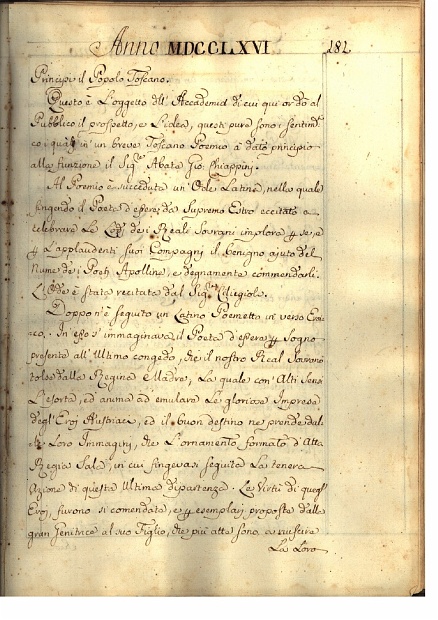 Anno MDCCLXVI 181
Principi il Popolo Toscano.
Questo è L'oggetto dll' Accademia di cui qui or dò al
Pubblico il prospetto, e L'idea, questi pure sono i sentim.ti
co i quali in un breve Toscano Poemio a dato principio
alla funzione il Sig.e Abate Gio: Chiappini.
Al Poemio è succeduta un' Ode Latina, nella quale
fingendo il Poeta d'essere da Supremo Estro eccitato a
celebrare Le de i Reali Sovrani implora p se, e
p L'applaudenti suoi Compagni il benigno ajuto del
Nume de i Poeti Apolline, e degnamente commendarli.
L'Ode è stata recitata dal Sig.e Ciliegiole.
Doppo n'è seguito un Latino Poemetto in verso Eroi
aco. In esso s'immaginava il Poeta d'essere p Sogno
presente all'Ultimo congedo, che il nostro Real Sovrano
tolse dalla Regina e Madre, La quale con' Alti Sensi
L'esorta, ed anima ad emulare Le gloriose Imprese
degl'Eroj Austriaci, ed il buon destino ne prende dal
le Loro Immagini, che L'ornamento formato d'Alta
Regia Sala, in cui fingevasi seguita La tenera
Azione di questa Ultima dipartenza. Le Virtù di quegl'
Eroj, furono si comendate, e p esemplari proposte dalla
gran Genitrice al suo Figlio, che più atte sono a riuscire
La Loro